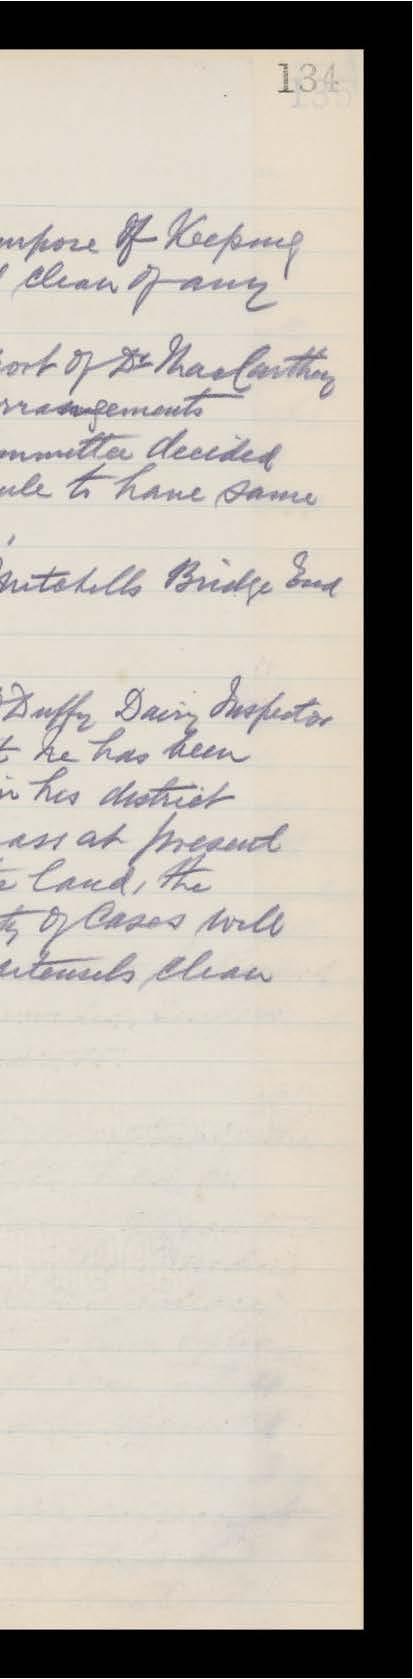 134
urpose Of Keeping
clean of any
port of Dr MacCarthy
rrangements
ommittee decided
ule to have same
Mitchells Bridge End
Duffy Dairy Inspector
t he has been
in his district
ass at present
te land, the
ty Of Cases will
utensels clean